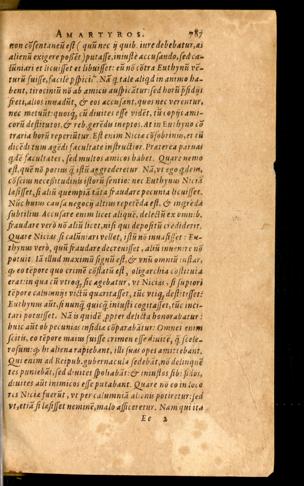 AMARTYROS. 787
non cōsentaneū est (quū nec ij quib. iure debebatur, ai
alienū exigere posset) putasse, iniustè accusando, sed ca-
lūniari et licuisset et libuisset: eū nō cōtra Euthynū vē-
turū fuisse, facilè pspici. Nā q. tale aliqd in animo ha-
bent, tirociniū nō ab amicis auspicātur: sed horū psidijs
freti, alios inuadūt, & eos accusant, quos nec verentur,
nec metuūt: quosq, cū diuites esse vidēt, tū copijs ami-
corū destitutos, & reb. gerēdis ineptos. At in Euthyno cō
traria horū reperiūtur. Est enim Niciæ cōsobrinus, et tū
dicēdi tum agēdi facultate instructior. Præterea parua
qdē facultates, sed multos amicos habet. Quare nemo
est, quē nō potius q̄ istū aggrederetur. Nā, vt ego qdem,
cōscius necessitudinis istorū sentio: nec Euthynus Niciā
læsisset, si aliū quempiā tāta fraudare pecunia licuisset.
Nūc harū causa negocij altius repetēda est, & ingrediā
subtilius. Accusare enim licet aliquē, delectū ex omnib.
fraudare verò nō aliū licet, nisi qui depositū crediderit.
Quare Nicias si calūniari vellet, istū nō inuasisset: Eu-
thynus verò, quū fraudare decreuisset, aliū inuenire nō
potuit. Iā illud maximū signū est, & vnū omniū instar,
q̄ eo tēpore quo crimē cōflatū est, oligarchia cōstituta
erat: in qua cū vtrosq, sic agebatur, vt Nicias, si superiori
tēpore calumnijs victū quæritasset, tūc vtiq, destitisset:
Euthynus aūt, si nunq̄ quicq̄ iniusti cogitasset, tūc inci-
tari potuisset. Nā is quidē ppter delicta honorabatur:
huic aūt ob pecunias insidiæ cōparabātur. Omnes enim
scitis, eo tēpore maius fuisse crimen esse diuitē, q̄ scele-
rosum: q̄a hi aliena rapiebant, illi suas opes amittebant.
Qui enim ad Reipub. gubernacula sedebāt, nō delinquē
tes puniebāt, sed diuites spoliabāt: & iniustos sib. fidos,
diuites aūt inimicos esse putabant. Quare nō eo in loco
res Niciæ fuerūt, vt per calumniā aliena potiretur: sed
vt, etiā si læsisset neminē, malo afficeretur. Nam qui ita
Ee 2